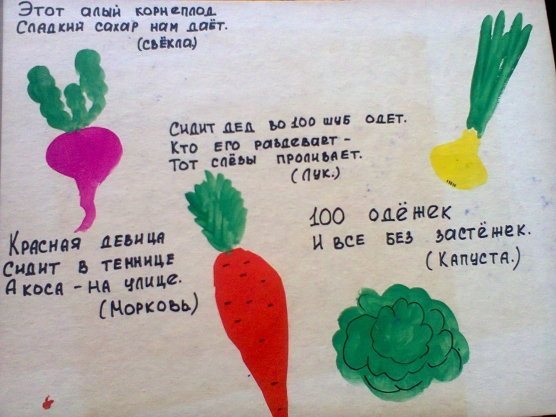 Этот алый корнеплод
Сладкий сахар нам даёт.
(свёкла)
Сидит дед во 100 шуб одет.
Кто его раздевает -
Тот слёзы проливает.
(Лук.)
100 одёжек
И все без застёжек.
(Капуста.)
Красная девица
Сидит в темнице
А коса - на улице.
(Морковь)